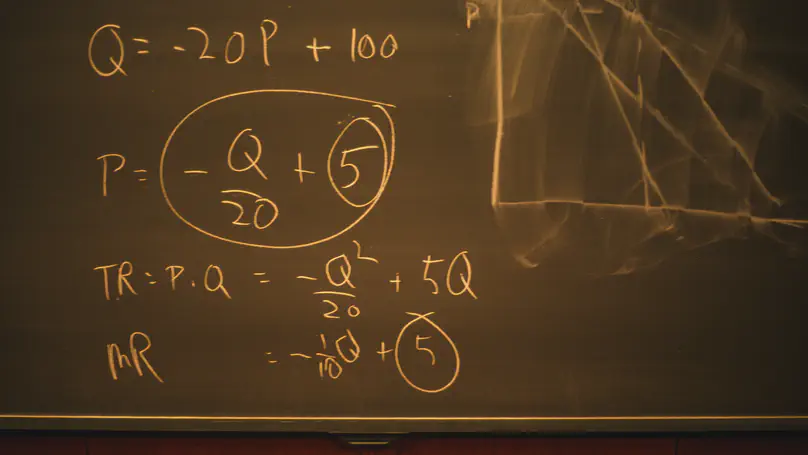 Q = -20P + 100
P = -Q/20 + 5
TR = P.Q = -Q²/20 + 5Q
MR = -1/10 Q + 5